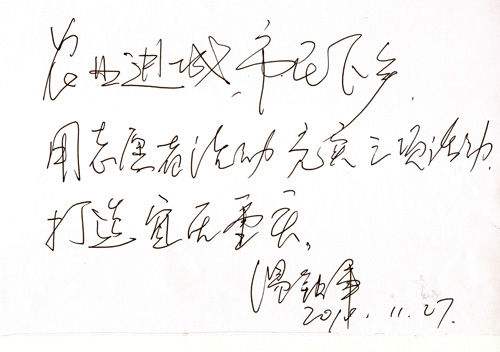 农业进城,市民下乡.
用志愿者活动充实三项活动.
打造宜居重庆。
温铁军
11.27.